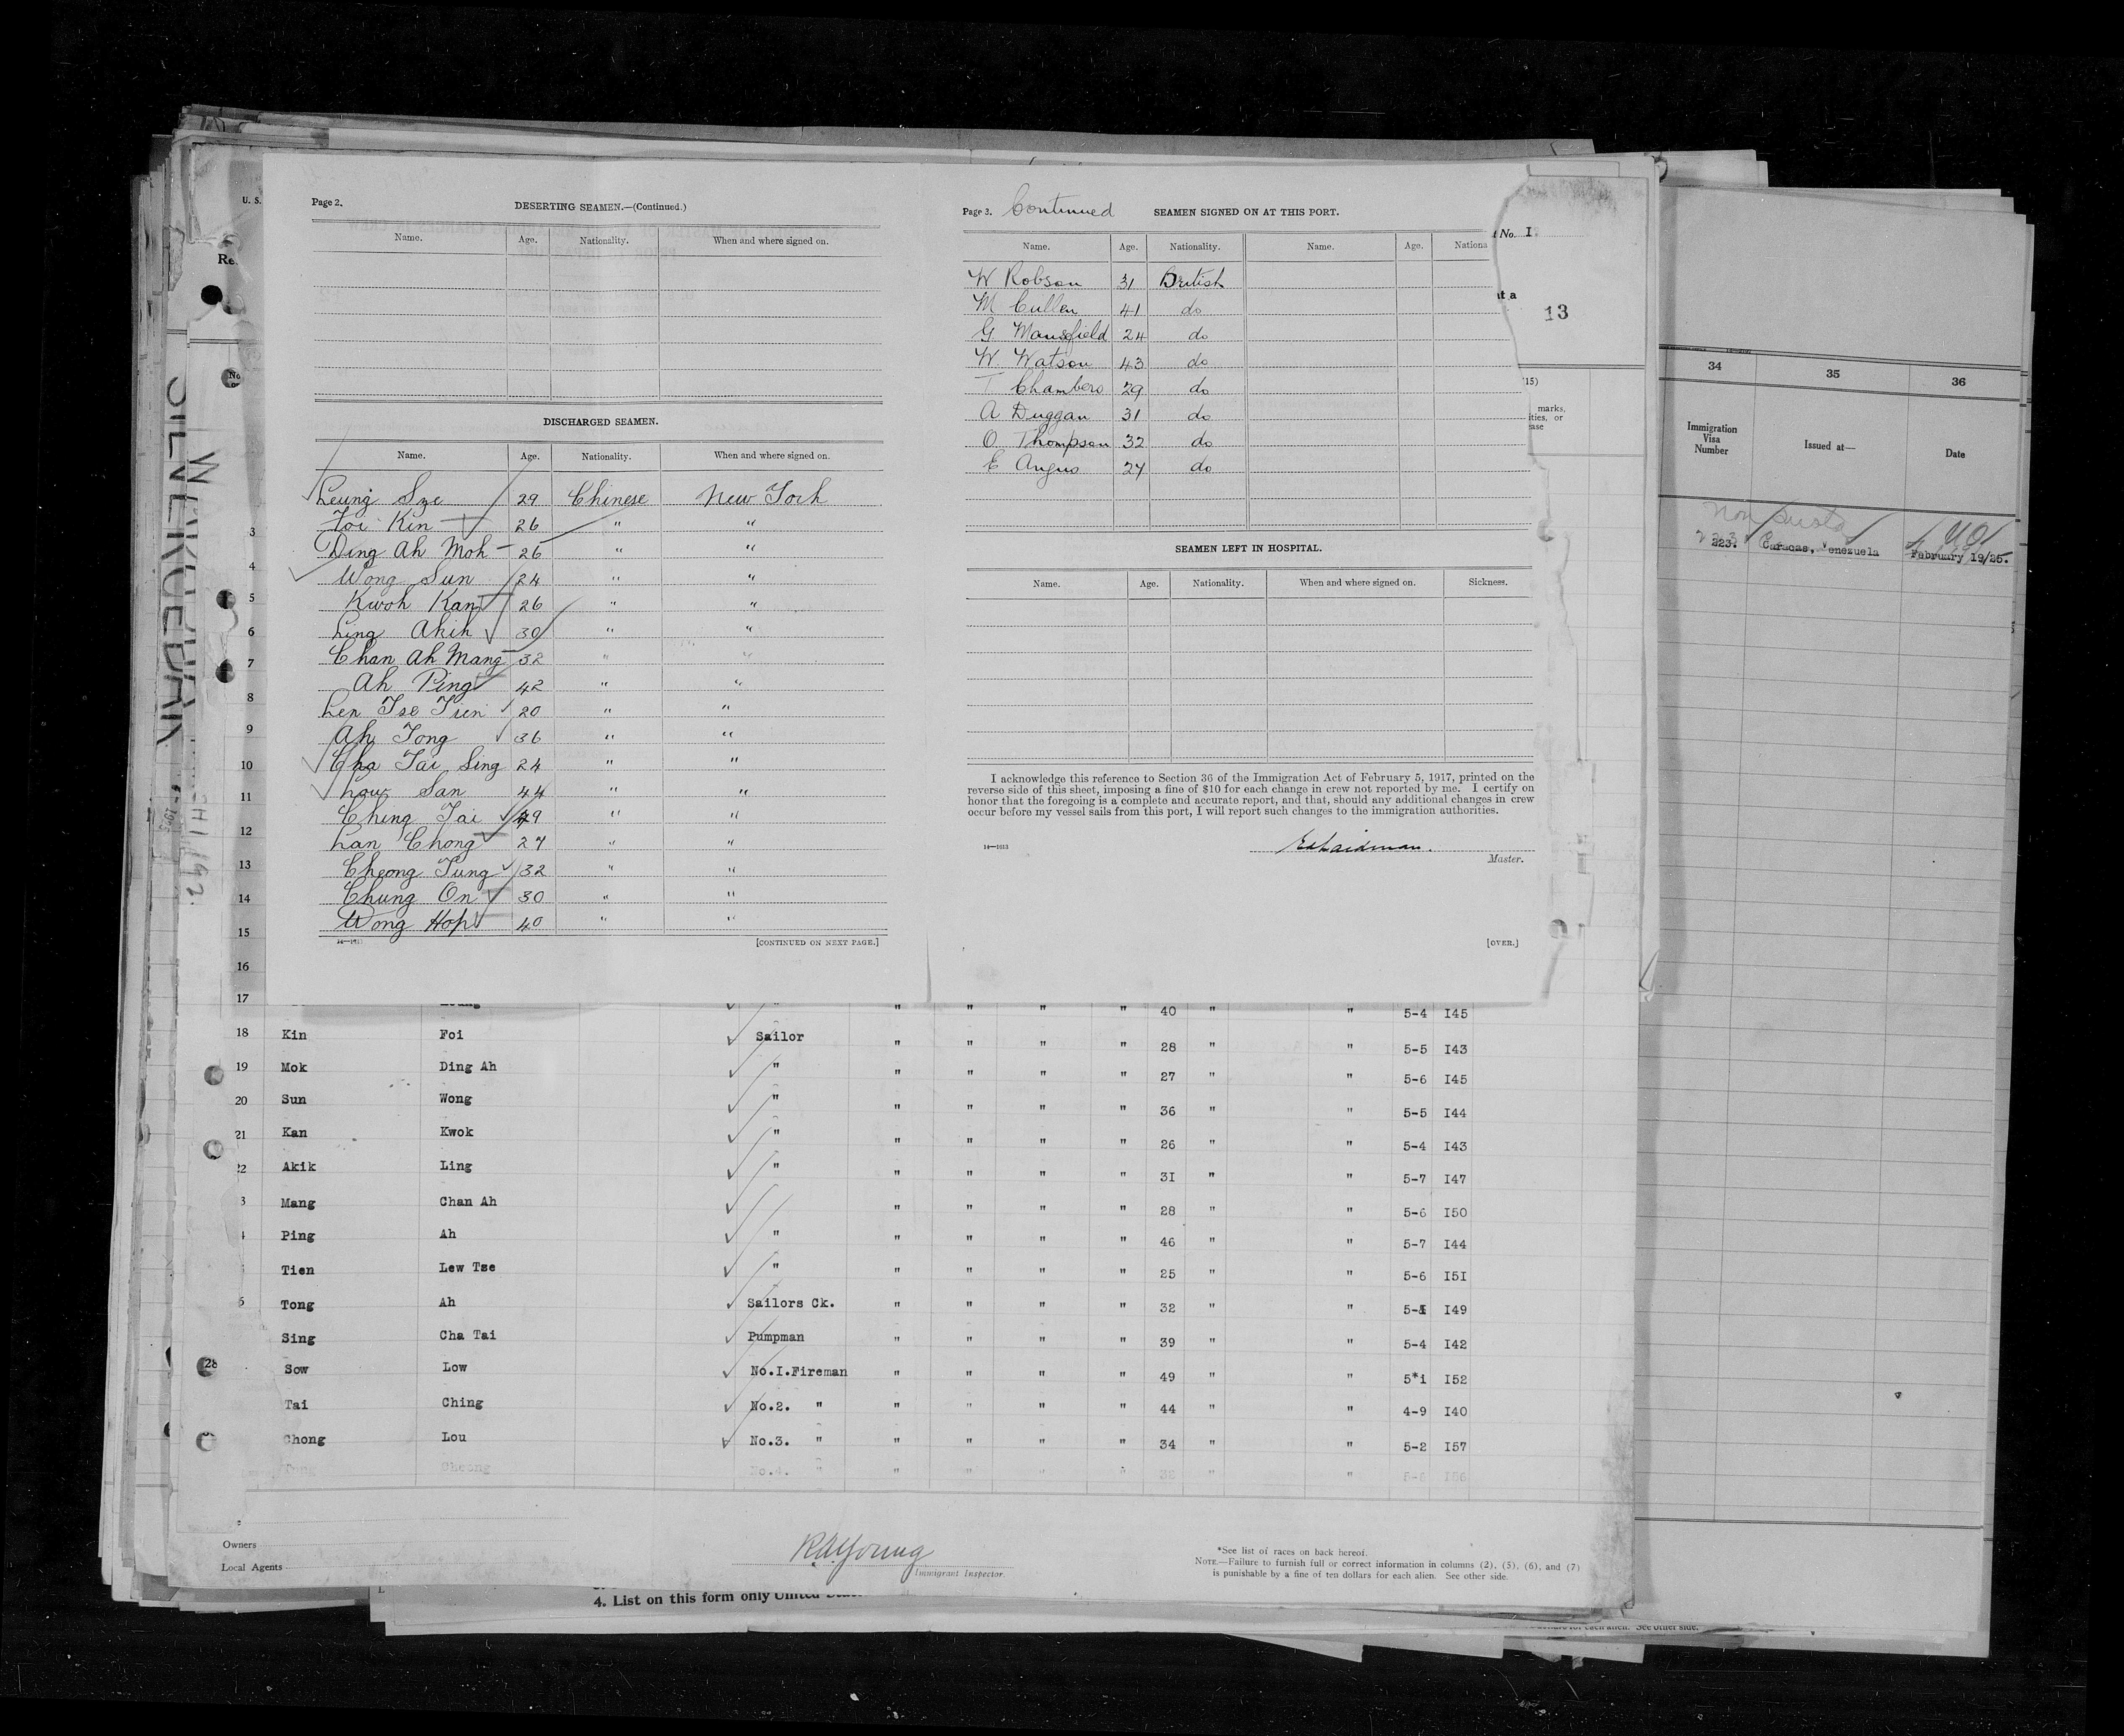 Page 2.
DESERTING SEAMEN.—(Continued.)
Name. Age. Nationality. When and where signed on.
DISCHARGED SEAMEN.
Name. Age. Nationality. When and where signed on.
Leung Sze 29 Chinese New York
Foi Kin 26 " "
Ding Ah Moh 26 " "
Wong Sun 24 " "
Kwoh Kan 26 " "
Ling Akik 30 " "
Chan Ah Mang 32 " "
Ah Ping 42 " "
Len Tse Tien 20 " "
Ah Tong 36 " "
Cha Tai Sing 24 " "
Low San 44 " "
Ching Tai 49 " "
Lan Chong 27 " "
Cheong Tung 32 " "
Chung On 30 " "
Wong Hop 40 " "
[CONTINUED ON NEXT PAGE.]
Page 3. Continued SEAMEN SIGNED ON AT THIS PORT.
Name. Age. Nationality. Name. Age. Nationa
W Robson 31 British
M Cullen 41 do
G Mansfield 24 do
W. Watson 43 do
T Chambers 29 do
A Duggan 31 do
O Thompson 32 do
E Angus 27 do
SEAMEN LEFT IN HOSPITAL.
Name. Age. Nationality. When and where signed on. Sickness.
I acknowledge this reference to Section 36 of the Immigration Act of February 5, 1917, printed on the
reverse side of this sheet, imposing a fine of $10 for each change in crew not reported by me. I certify on
honor that the foregoing is a complete and accurate report, and that, should any additional changes in crew
occur before my vessel sails from this port, I will report such changes to the immigration authorities.
Master.
[OVER.]
U. S.
No. I
13
(15)
marks,
ities, or
ase
34 35 36
Immigration
Visa
Number
Issued at—
Date
223. Caracas, Venezuela February 19/25.
3
4
5
6
7
8
9
10
11
12
13
14
15
16
17 " " " " 40 " " 5-4 I45
18 Kin Foi Sailor " " " " 28 " " 5-5 I43
19 Mok Ding Ah " " " " " 27 " " 5-6 I45
20 Sun Wong " " " " " 36 " " 5-5 I44
21 Kan Kwok " " " " " 26 " " 5-4 I43
22 Akik Ling " " " " " 3I " " 5-7 I47
3 Mang Chan Ah " " " " 28 " " 5-6 I50
Ping Ah " " " " " 46 " " 5-7 I44
Tien Lew Tse " " " " " 25 " " 5-6 I5I
Tong Ah Sailors Ck. " " " " 32 " " 5- I49
Sing Cha Tai Pumpman " " " " 39 " " 5-4 I42
28 Sow Low No.I.Fireman " " " " 49 " " 5*1 I52
Tai Ching No.2. " " " " " 44 " " 4-9 I40
Chong Lou No.3. " " " " " 34 " " 5-2 I57
Cheong No.4. " " " " " " "
Owners
Local Agents
R.A. Young
Immigrant Inspector.
*See list of races on back hereof.
NOTE.—Failure to furnish full or correct information in columns (2), (5), (6), and (7)
is punishable by a fine of ten dollars for each alien. See other side.
4. List on this form only United
for each alien. See other side.